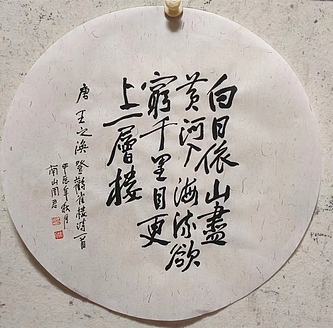 白日依山盡
黄河入海流欲
窮千里目更
上一層樓
唐王之渙登鸛雀樓詩一首
甲辰年秋月
南山周君